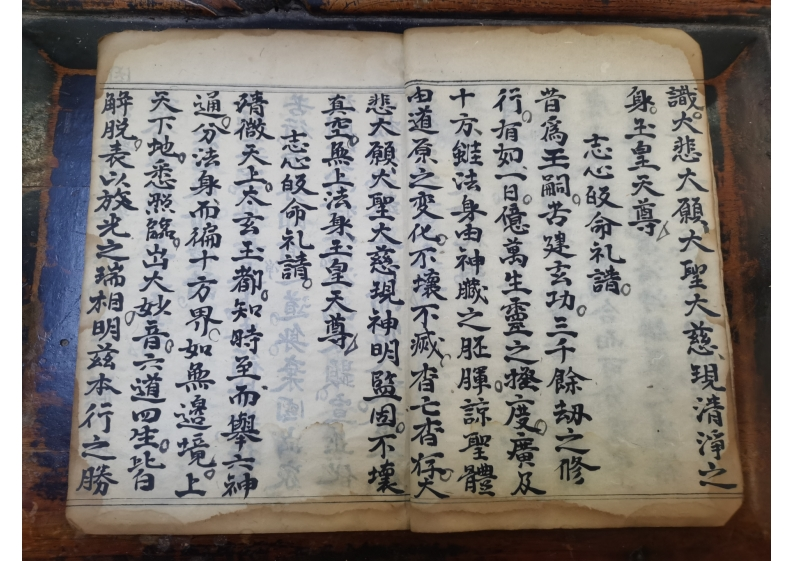 識。大悲大願大聖大慈現清淨之
身。玉皇天尊
志心皈命礼請。
昔爲王嗣。苦建玄功。三千餘劫之修
行。有如一日。億萬生靈之擾度。廣及
十方。雖法身由神臟之胚腪。諒聖體
由道原之變化。不壞不滅。杳亡杳存。大
悲大願大聖大慈現神明監固。不壞
真空。無上法身玉皇天尊
志心皈命礼請。
靖微天上。太玄玉都。知時至而舉六神
通。分法身而徧十方界。如無邊境。上
天下地。悉照臨。出大妙音。六道四生。皆
解脫。表以放光之瑞相。明兹本行之勝